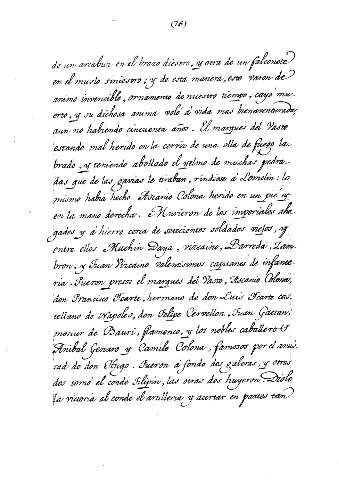 (76)
de un arcabuz en el brazo diestro, y otra de un falconete
en el muslo siniestro; y de esta manera, este varon de
animo invencible, ornamento de nuestro tiempo, cayó mu-
erto, y su dichosa anima voló á vida mas bienaventurada,
aun no habiendo cincuenta años. El marques del Vasto
estando mal herido en la cerviz de una olla de fuego la-
brado, y teniendo abollado el yelmo de muchas pedra-
das que de las gavias le tiraban, rindióse á Lomelin: lo
mismo había hecho Ascanio Colona herido en un pie y
en la mano derecha. Murieron de los imperiales aho-
gados y á hierro cerca de setecientos soldados viejos, y
entre ellos Machin Daya, vizcaino, Barreda, Zam-
bron, y Juan Vizcaino valentisimos capitanes de infante-
ria. Fueron presos el marques del Vasto, Ascanio Colona,
don Francisco Ycarte, hermano de don Luis Ycarte cas-
tellano de Napoles, don Felipe Cervellon, Juan Gaetan,
mosiur de Bauri, flamenco, y los nobles caballeros
Anibal Genaro y Camilo Colona, famosos por el amis-
tad de don Hugo. Fueron á fondo dos galeras, y otras
dos tomó el conde Filipin, las otras dos huyeron. Dióle
la vitoria al conde el artilleria y acertar en partes tan